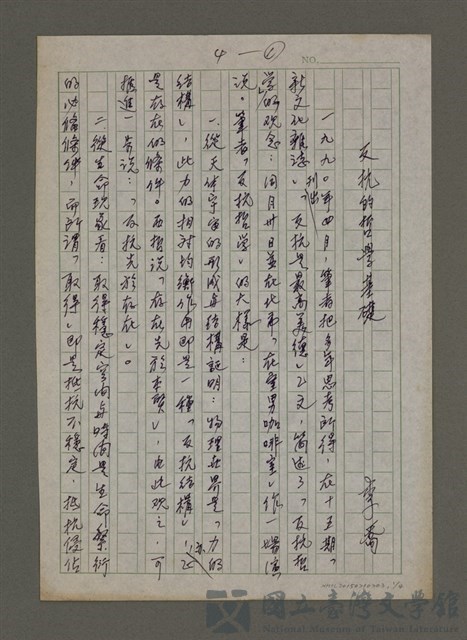 4-①
NO.
反抗的哲學基礎
李喬
一九九〇年四月,筆者把多年思考所得,在十五期「
新文化雜誌」刊出「反抗是最高美德」乙文,簡述了「反抗哲
學」的觀念;同月廿日並在北市「在室男咖啡室」作一場演
說。筆者「反抗哲學」的大樣是:
一、從天体宇宙的形成與結構証明:物理世界是「力的
結構」,此力的相對均衡作用即是一種「反抗結構」,亦
是存在的條件。西哲說「存在先於本質」,由此觀之,可
推進一步說:「反抗先於存在」。
二、從生命現象看:取得穩定空間與時間是生命繁衍
的必備條件,而所謂「取得」即是抵抗不穩定,抵抗侵佔
國立臺灣文學館
National Museum of Taiwan Literature